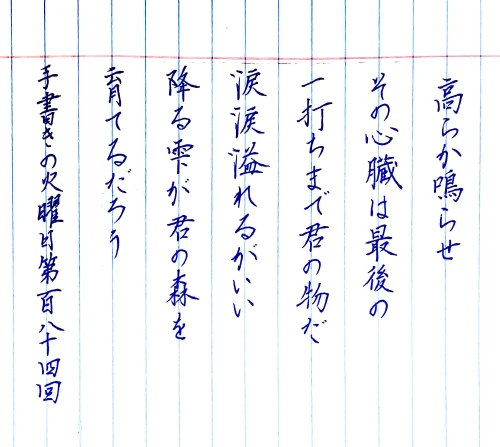 高らか鳴らせ
その心臓は最後の
一打ちまで君の物だ
涙涙溢れるがいい
降る雫が君の森を
育てるだろう
手書きの火曜日第百八十四回